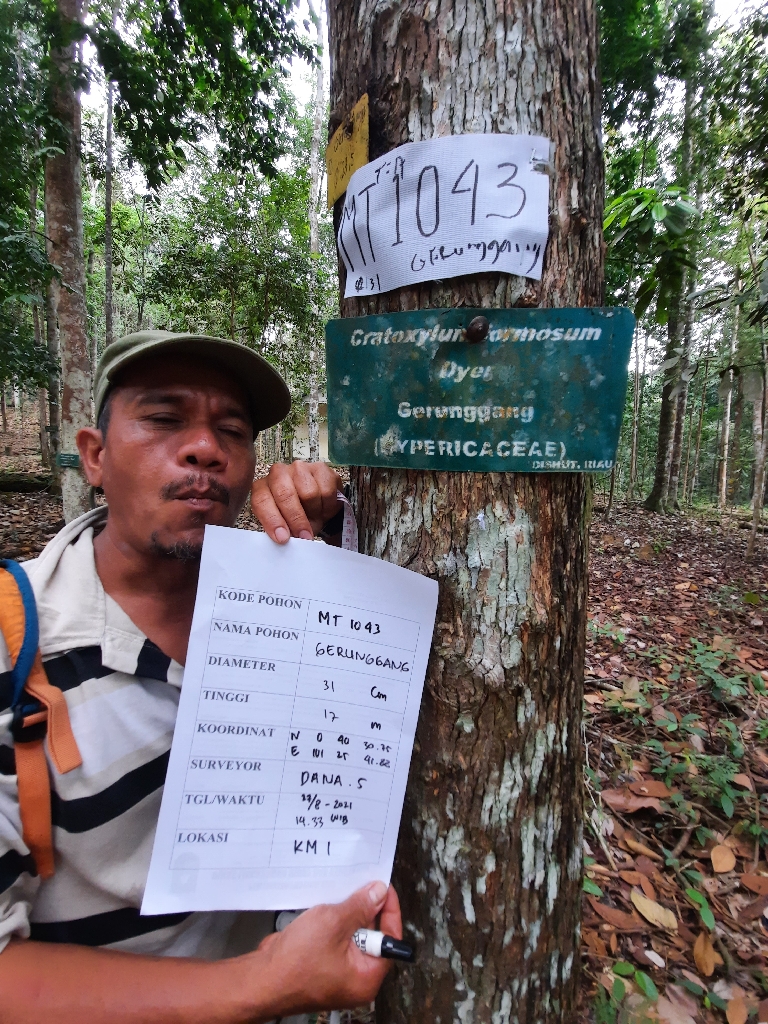 T=17
MT 1043
Gerunggang
Ø 31
Cratoxylum formosum
Dyer
Gerunggang
(HYPERICACEAE)
DISHUT. RIAU
KODE POHON MT 1043
NAMA POHON GERUNGGANG
DIAMETER 31 Cm
TINGGI 17 m
KOORDINAT N 0 40 30.75
E 101 25 41.82
SURVEYOR DANA. S
TGL/WAKTU 29/8-2021
14.33 WIB
LOKASI KM 1